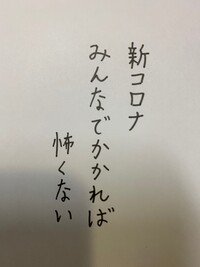 新コロナ
みんなでかかれば
怖くない